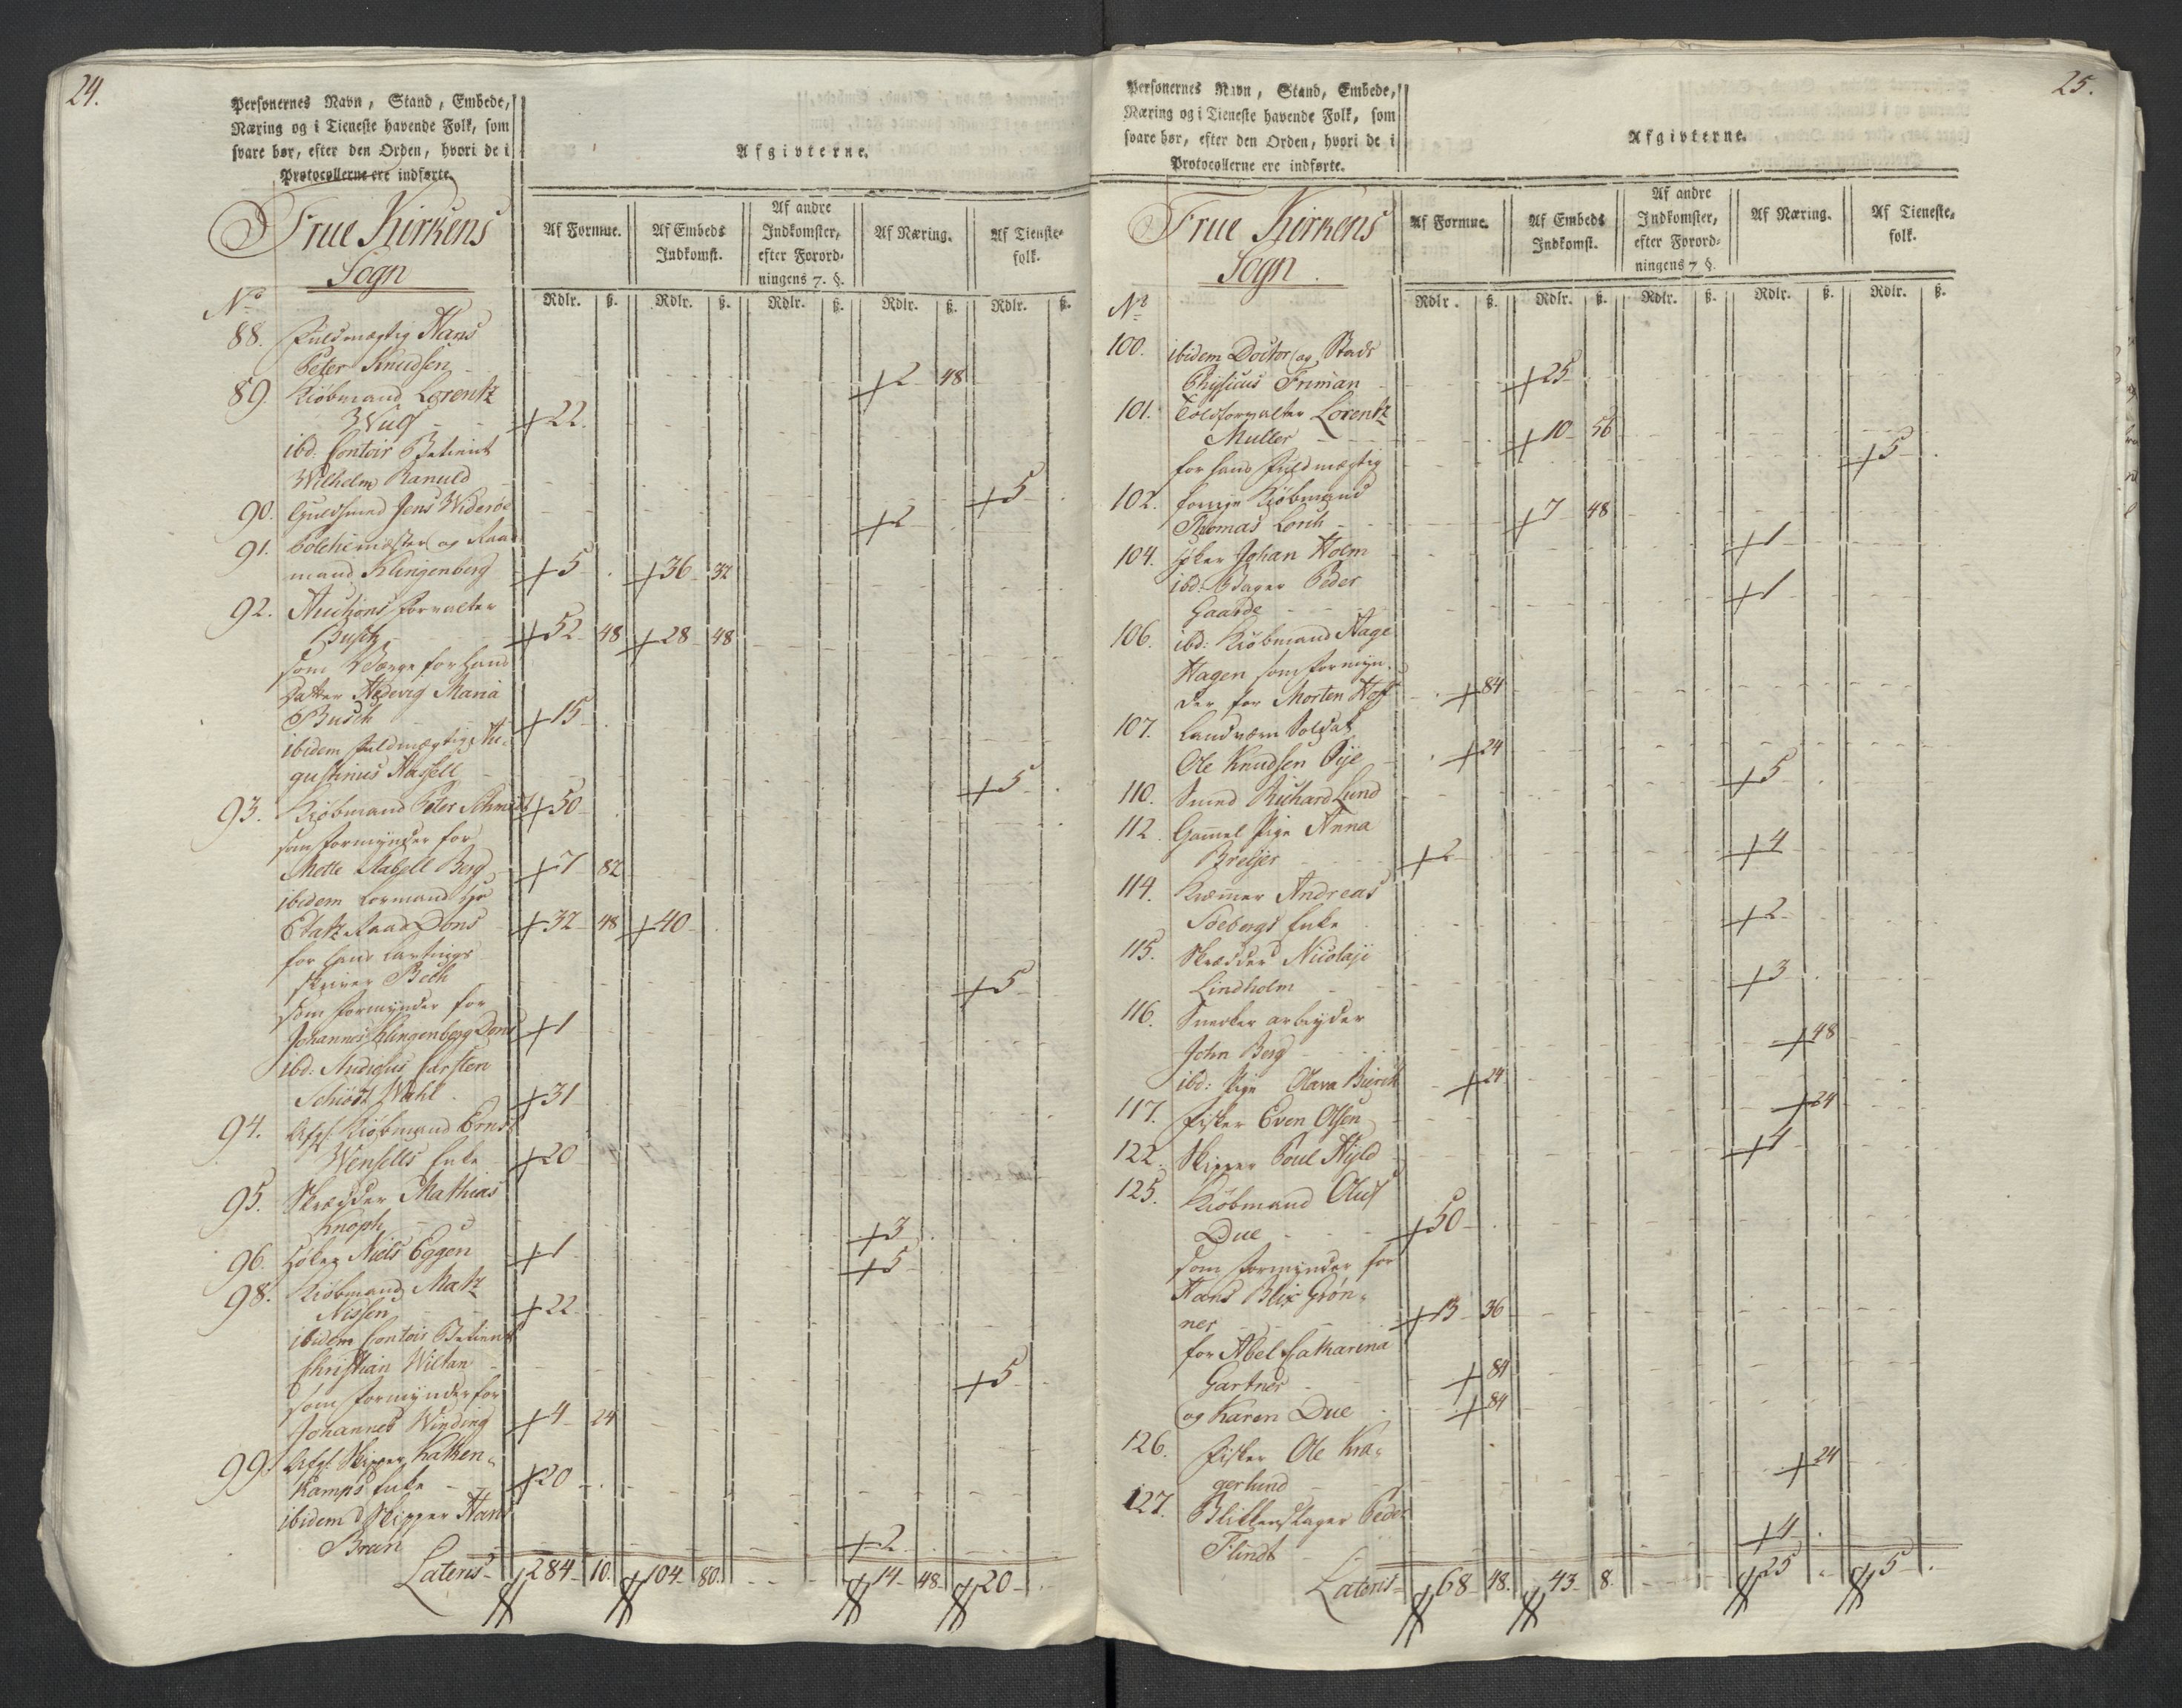 24.
Personernes Navn, Stand, Embede,
Næring og i Tieneste havende Folk, som
svare bør, efter den Orden, hvori de i
Protocollerne ere indførte.
Afgivterne.
Frue Kirkens
Sogn
Af Formue.
Af Embeds
Indkomst.
Af andre
Indkomster,
efter Forord-
ningens 7. §.
Af Næring.
Af Tieneste-
folk.
No
Rdlr. ß. Rdlr. ß. Rdlr. ß. Rdlr. ß. Rdlr. ß.
88. Fuldmægtig Hans
Peter Knudsen - 2 48
89. Kiøbmand Lorentz
Wulf - 22
ibd: Contoir Betient
Wilhelm Ranuld - 5
90. Guldsmed Jens Widerøe 2
91. Politiemester og Raad
mand Klingenberg 5 36 32
92. Auctions forvalter
Busch - 52 48 28 48
som Værge for hans
Datter Hedevig Maria
Busch 15
ibidem Fuldmægtig Au-
gustinus Hassell - 5
93. Kiøbmand Peter Schmidt 50
som formynder for
Mette Abell Berg 7 82
ibidem Laymand
Etatz Raad Dons 32 48 40
for hans Lavtings
skriver Beck 5
som formynder for
Johannes Klingenberg Dons 1
ibd: Studiosus Carsten
Schiødt Wahl 31
94. Afg: Kiøbmand Ernst
Wensells Enke 20
95. Skrædder Mathias
Knoph 3
96. Høker Niels Eggen 1 5
98. Kiøbmand Matz
Nissen 22
ibidem Contoir Betient
Christian Wiltan - 5
som formynder for
Johannes Winding 4 24
99. Afg: Skipper Katken-
kamps Enke - 20
ibidem Skipper Hans
Brun 2
Lateris 284 10 104 80 14 48 20
25.
Personernes Navn, Stand, Embede,
Næring og i Tieneste havende Folk, som
svare bør, efter den Orden, hvori de i
Protocollerne ere indførte.
Afgivterne.
Frue Kirkens
Sogn.
Af Formue.
Af Embeds
Indkomst.
Af andre
Indkomster,
efter Forord-
ningens 7 §.
Af Næring.
Af Tieneste-
folk.
No
Rdlr. ß. Rdlr. ß. Rdlr. ß. Rdlr. ß. Rdlr. ß.
100. ibidem Doctor og Stads
Physicus Friman 25
101. Toldforvalter Lorentz
Müller 10 56
for hans Fuldmægtig 5
102. forrige Kiøbmand
Thomas Lorck 7 48
104. Høker Johan Holm 1
ibd: Bager Peder
Gaarde 1
106. ibd: Kiøbmand Hage
Hagen som formyn-
der for Morten Hoff 84
107. Landværn Soldat
Ole Knudsen Bye 24
110. Smed Richard Lund 5
112. Gammel Pige Anna
Bretjer 2 4
114. Kræmmer Andreas
Soebergs Enke 2
115. Skrædder Nicolaji
Lindholm 3
116. Snedker arbeyder
John Berg 48
ibd: Pige Olava 24
117. Fisker Even Olsen 24
122. Skipper Poul Hyld 1
125. Kiøbmand Oluf
Due 50
som formynder for
Hans Blix Grøn-
ner 13 36
for Abel Catharina
Gartner 84
og Karen Due 84
126. Fisker Ole Kra-
gerlund 24
127. Blikkenslager Peder
Flindt 4
Lateris 68 48 43 8 25 5